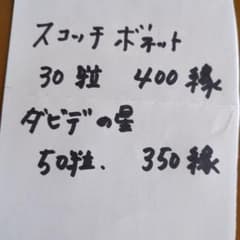 スコッチ ボネット
30粒 400縁
ダビデの星
50粒. 350縁